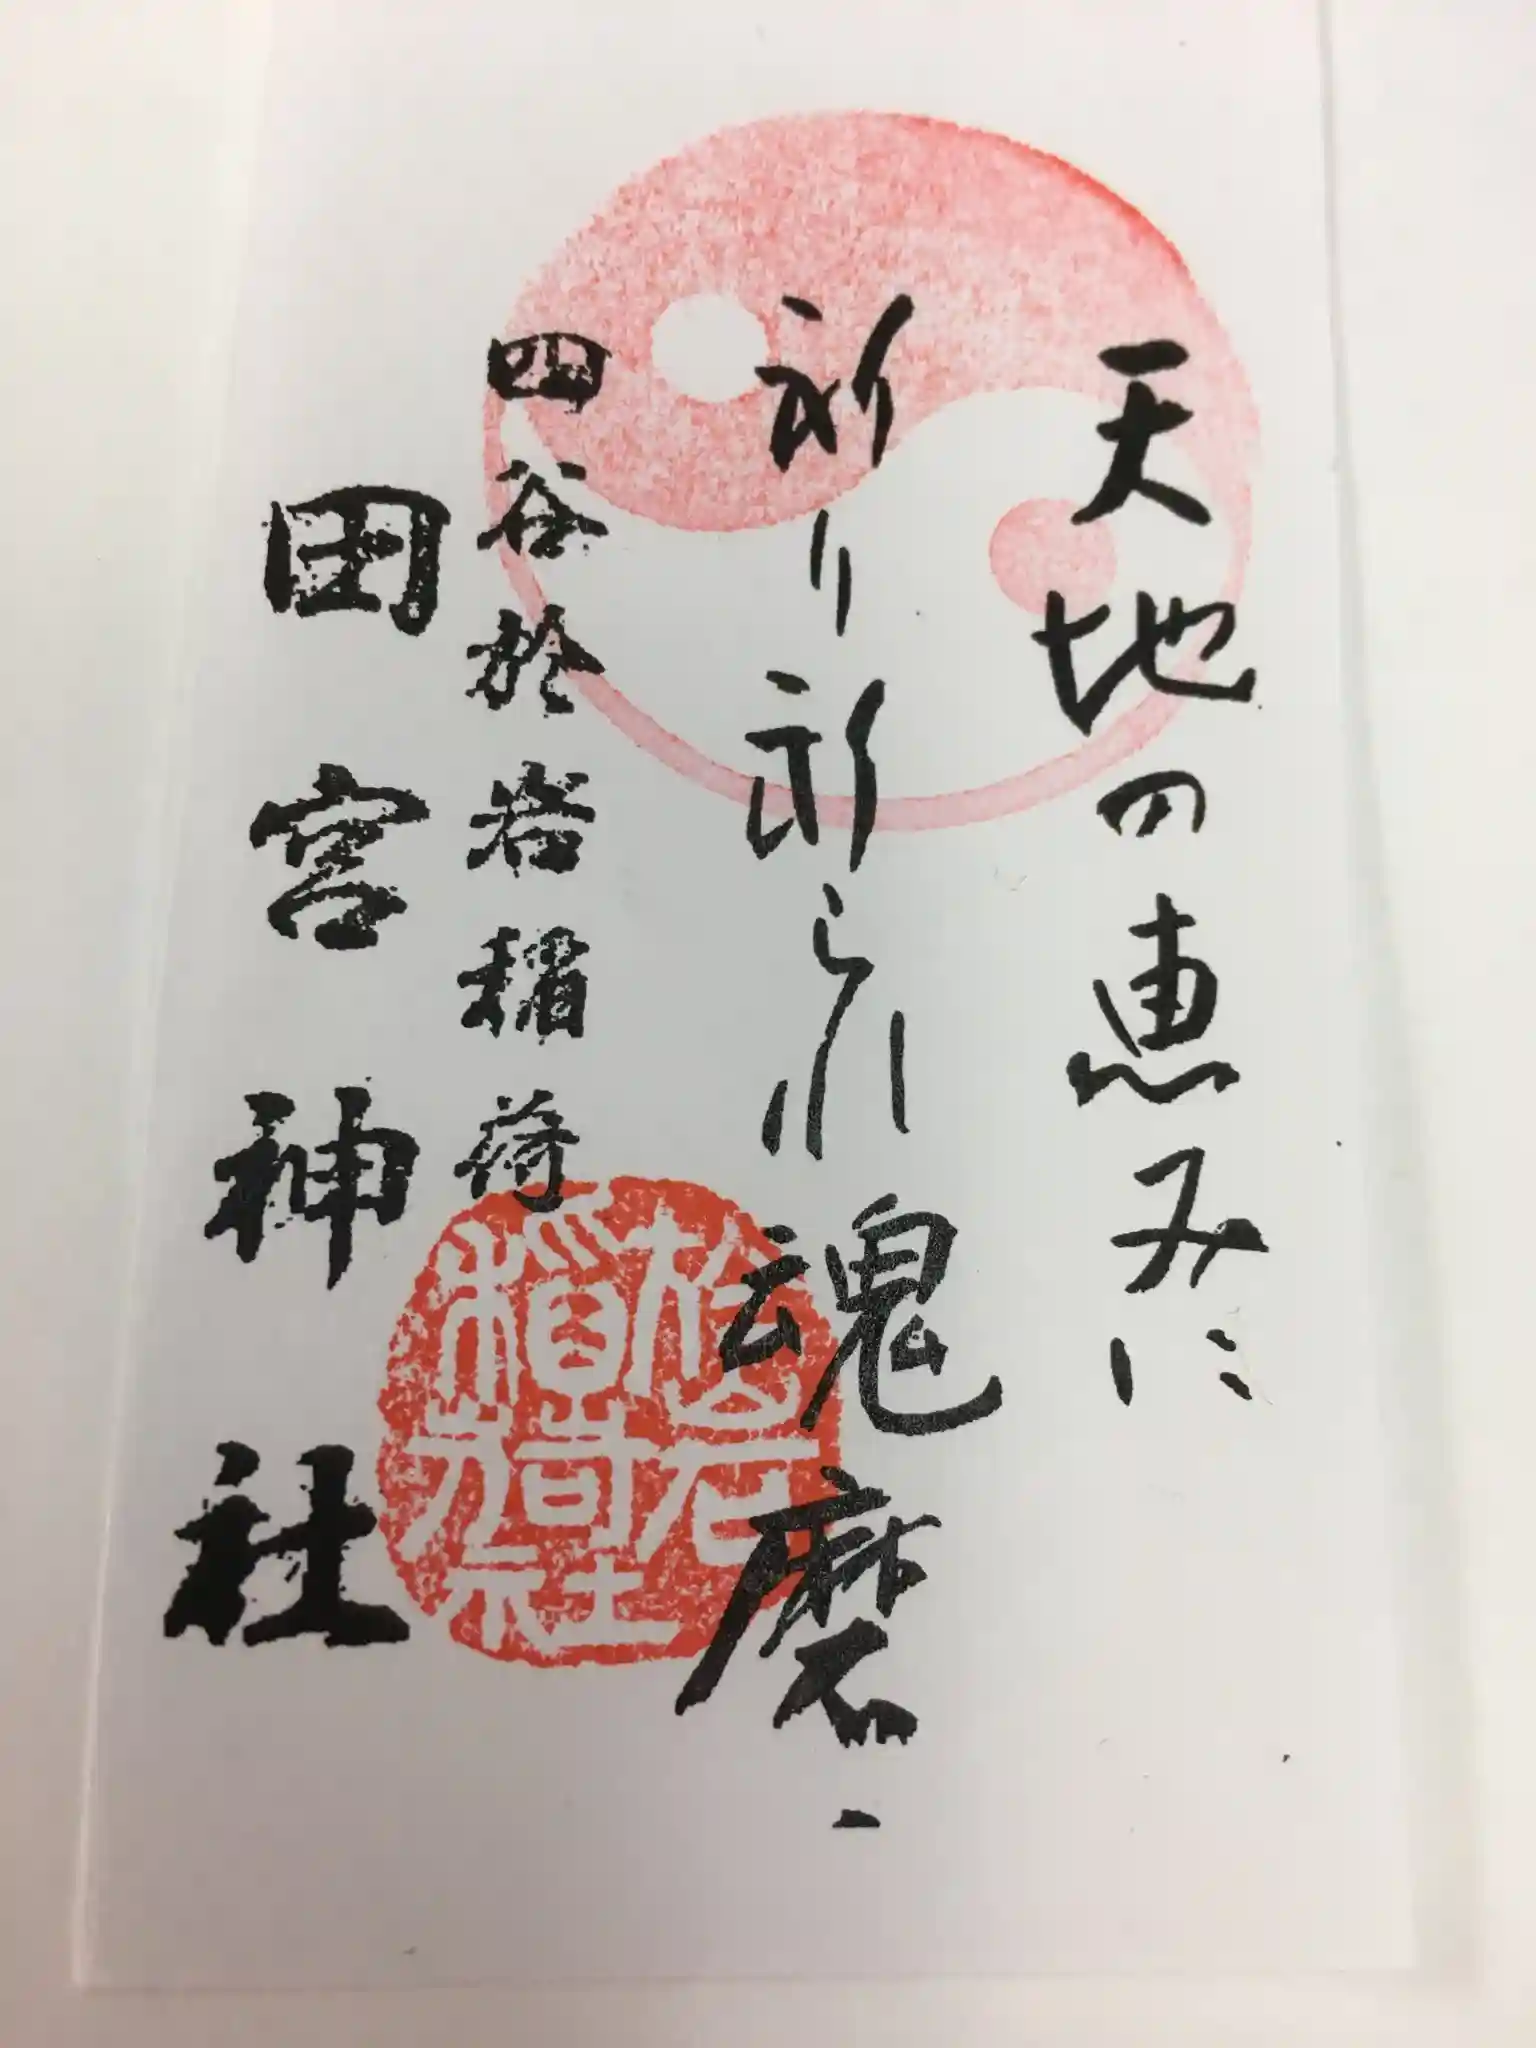 天地の恵みに
祈り祈られ魂磨く
四谷於岩稲荷
田宮神社
於岩
稲荷
社